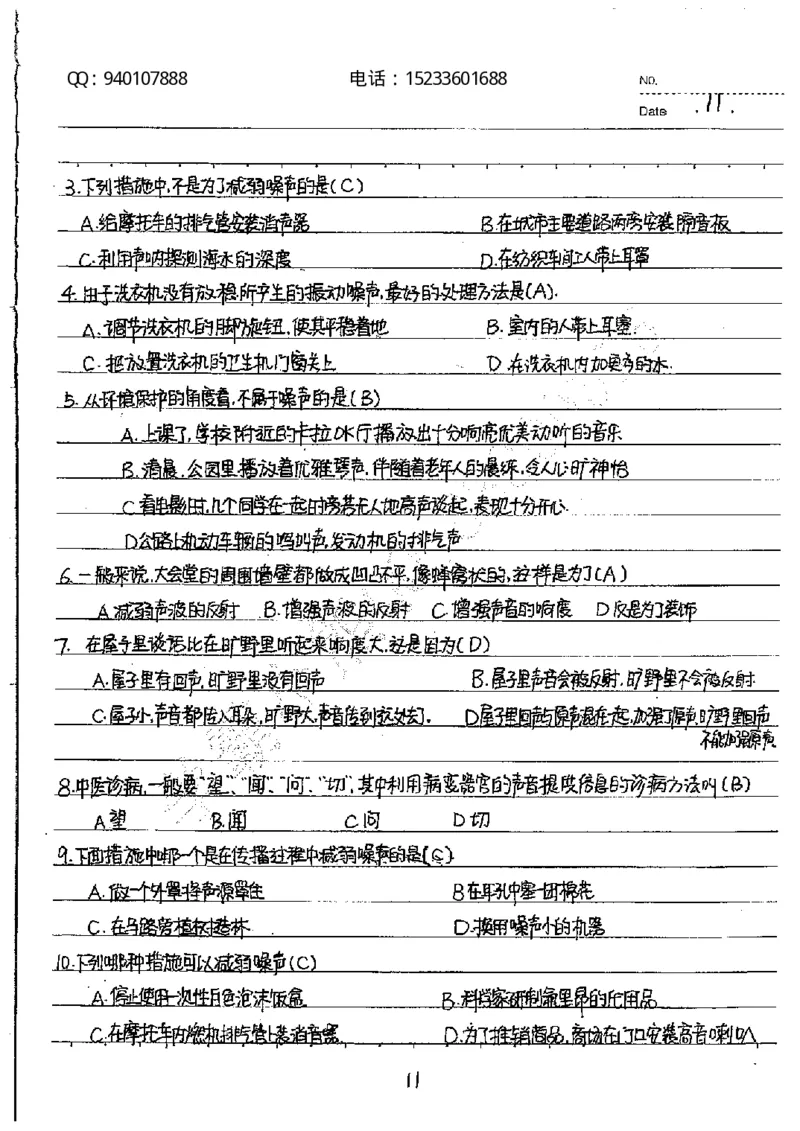 QQ：940107888 电话：15233601688 NO.
Date .11.
3.下列措施中,不是为了减弱噪声的是(C)
A.给摩托车的排气管安装消声器 B.在城市主要道路两旁安装隔音板
C.利用声呐探测海水的深度 D.在纺织车间工人带上耳罩
4.由于洗衣机没有放稳所产生的振动噪声,最好的处理方法是(A).
A.调节洗衣机的脚旋钮,使其平稳着地 B.室内的人带上耳塞.
C.把放置洗衣机的卫生机门窗关上 D.在洗衣机内加更多的水.
5.从环境保护的角度看,不属于噪声的是(B)
A.上课了,学校附近的卡拉OK厅播放出十分响亮优美动听的音乐
B.清晨.公园里播放着优雅琴声,伴随着老年人的晨练,令人心旷神怡
C看电影时,几个同学在一起时旁若无人地高声谈起,表现十分开心.
D公路上机动车辆的鸣叫声,发动机的排气声
6.一般来说,大会堂的周围墙壁都做成凹凸不平,像蜂窝状的,这样是为了(A)
A.减弱声波的反射 B.增强声波的反射 C增强声音的响度 D反是为了装饰
7.在屋子里谈话比在旷野里听起来响度大,这是因为(D)
A.屋子里有回声,旷野里没有回声 B.屋子里声音会被反射.旷野里不会被反射.
C.屋子小,声音都传入耳朵,旷野大,声音传到远处去了. D屋子里回声与原声混在一起,加强了原声,旷野里回声
不能加强原声
8.中医诊病,一般要"望"、"闻"、"问"、"切",其中利用病变器官的声音提取信息的诊病方法叫(B)
A望 B.闻 C问 D切
9.下面措施中哪一个是在传播过程中减弱噪声的是(C)
A.做一个外罩将声源罩住 B在耳孔中塞一团棉花
C.在马路旁植树造林 D.换用噪声小的机器
10.下列哪种措施可以减弱噪声(C)
A.停止使用一次性白色泡沫饭盒 B.科学家研制氟里昂的代用品
C.在摩托车内燃机排气管上装消音器 D.为了推销商品,商场在门口安装高音喇叭
11